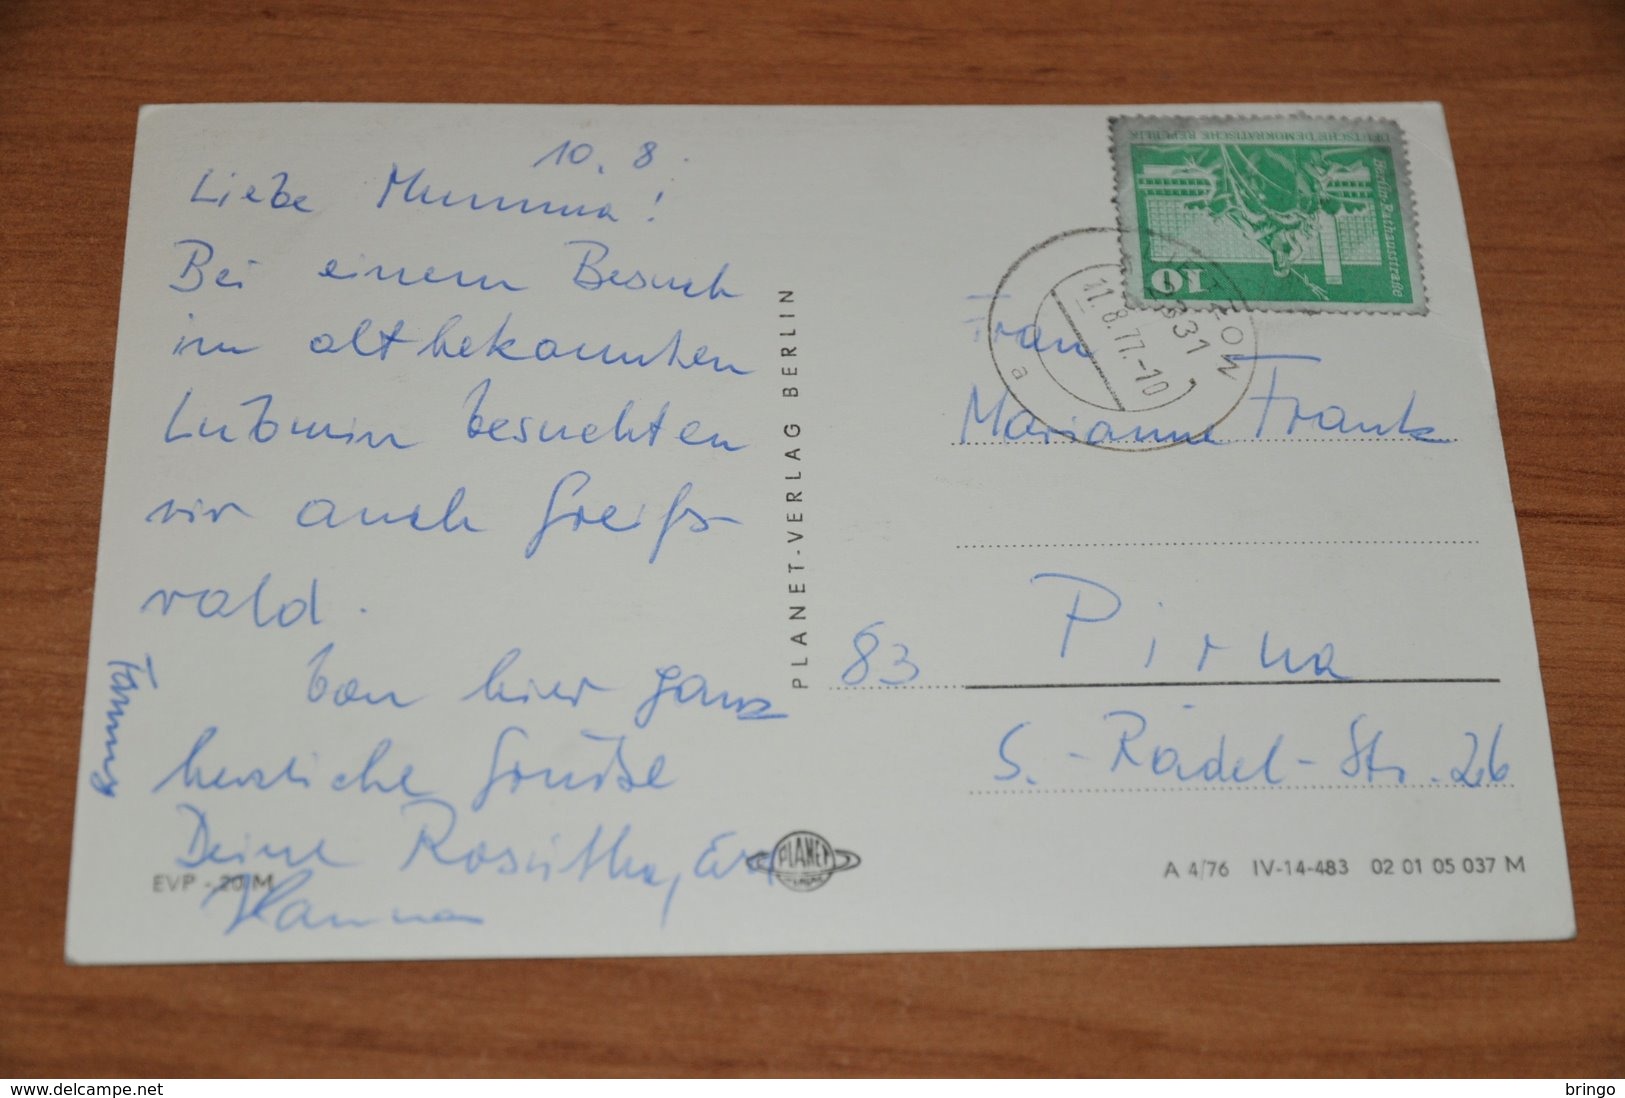 10. 8.
Liebe Mumma!
Bei einem Besuch
im altbekannten
Lubmin besuchten
wir auch Greifs-
wald.
Von hier ganz
herzliche Grüße
Deine Roswitha,
Hanna
PLANET-VERLAG BERLIN
EVP - 20 M
PLANET
DEUTSCHE DEMOKRATISCHE REPUBLIK
Berlin, Rathausstraße
10
2631
11.8.77.-10
a
Frau
Marianne Frank
83 Pirna
S.-Rädel-Str. 26
A 4/76 IV-14-483 02 01 05 037 M
www.delcampe.net
bringo